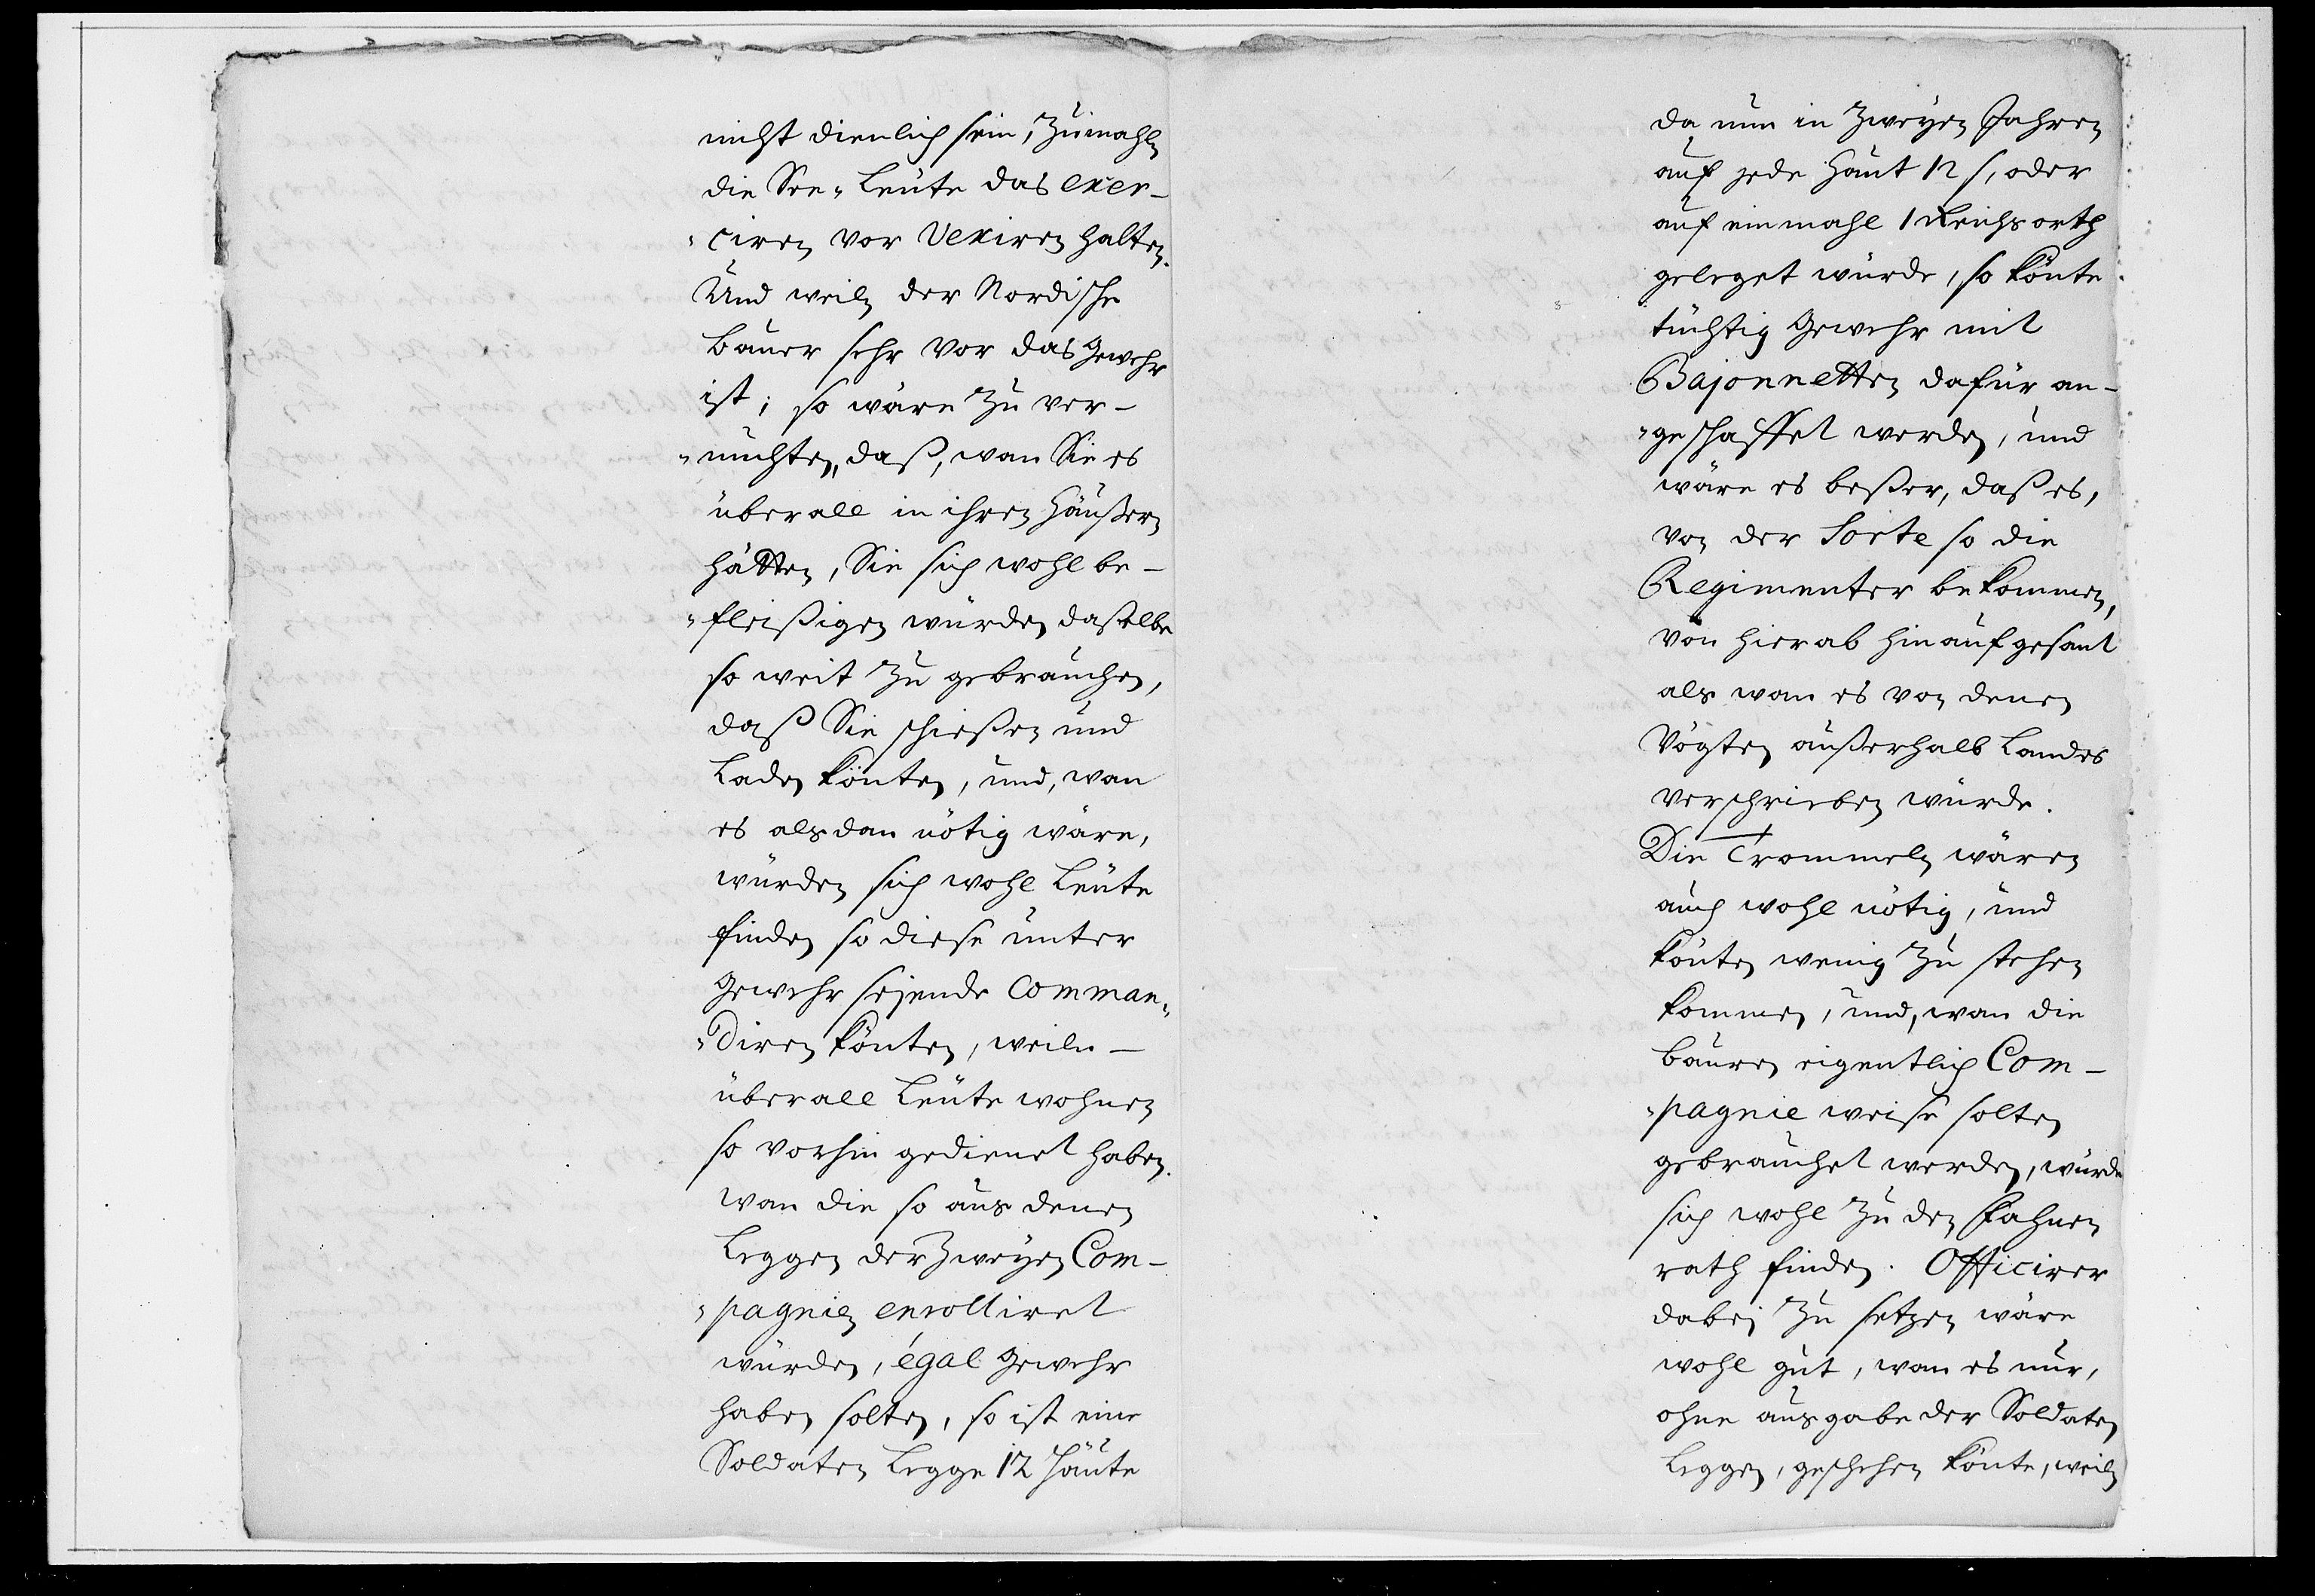 nicht dienlich sein, Zumahln
die See-Leute das exer-
-ciren vor Vexiren halten.
Und weiln der Nordische
Bauer sehr vor das Gewehr
ist; so wäre zu ver-
-muhten, daß, wan Sie es
überall in ihren Häußern
hätten, Sie sich wohl be-
-fleißigen würden daßelbe
so weit zu gebrauchen,
daß Sie schießen und
Laden könten, und, wan
es alsdan nötig wäre,
würden sich wohl Leute
finden so diese unter
Gewehr sejende Comman-
-diren könten, weiln
überall Leute wohnen
so vorhin gedienet haben.
wan die so aus denen
Leggen der Zweyen Com-
-pagnien enrolliret
würden, égal Gewehr
haben solten, so ist eine
Soldaten Legge 12 Häute
da nun in Zweyen Jahren
auf jede Haut 12 s, oder
auf einmahl 1 Reichsorth
geleget würde, so könte
tüchtig Gewehr mit
Bajonnetten dafür an-
-geschaffet werden, und
wäre es beßer, daß es,
von der Sorte so die
Regimenter bekommen,
von hier ab hinauf gesant
als wan es von denen
Vögten außerhalb Landes
verschrieben würde.
Die Trommeln wären
auch wohl nötig, und
könten wenig zu stehen
kommen, und, wan die
Bauren eigentlich Com-
-pagnie weise solten
gebrauchet werden, würde
sich wohl zu den Fahnen
rath finden. Officirer
dabei zu setzen wäre
wohl gut, wan es nur,
ohne ausgabe der Soldaten
Leggen, geschehen könte, weiln